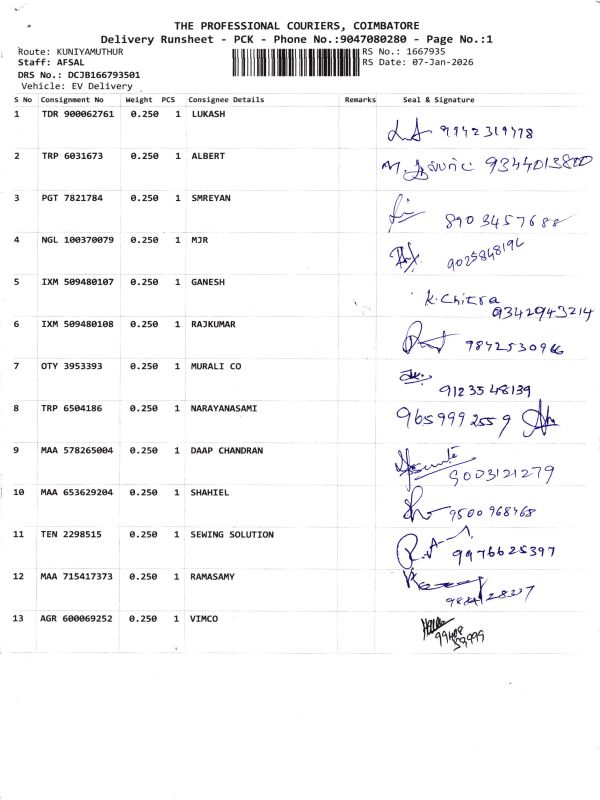 THE PROFESSIONAL COURIERS, COIMBATORE
Delivery Runsheet - PCK - Phone No.:9047080280 - Page No.:1
Route: KUNIYAMUTHUR RS No.: 1667935
Staff: AFSAL RS Date: 07-Jan-2026
DRS No.: DCJB166793501
Vehicle: EV Delivery
S No Consignment No Weight PCS Consignee Details Remarks Seal & Signature
1 TDR 900062761 0.250 1 LUKASH
2 TRP 6031673 0.250 1 ALBERT 9344013800
3 PGT 7821784 0.250 1 SMREYAN 8903457688
4 NGL 100370079 0.250 1 MJR 9025848194
5 IXM 509480107 0.250 1 GANESH K. Chitra
9342943214
6 IXM 509480108 0.250 1 RAJKUMAR 9842530966
7 OTY 3953393 0.250 1 MURALI CO
9123548139
8 TRP 6504186 0.250 1 NARAYANASAMI 9659992559
9 MAA 578265004 0.250 1 DAAP CHANDRAN
9003121279
10 MAA 653629204 0.250 1 SHAHIEL 9500968468
11 TEN 2298515 0.250 1 SEWING SOLUTION
9976625397
12 MAA 715417373 0.250 1 RAMASAMY
13 AGR 600069252 0.250 1 VIMCO